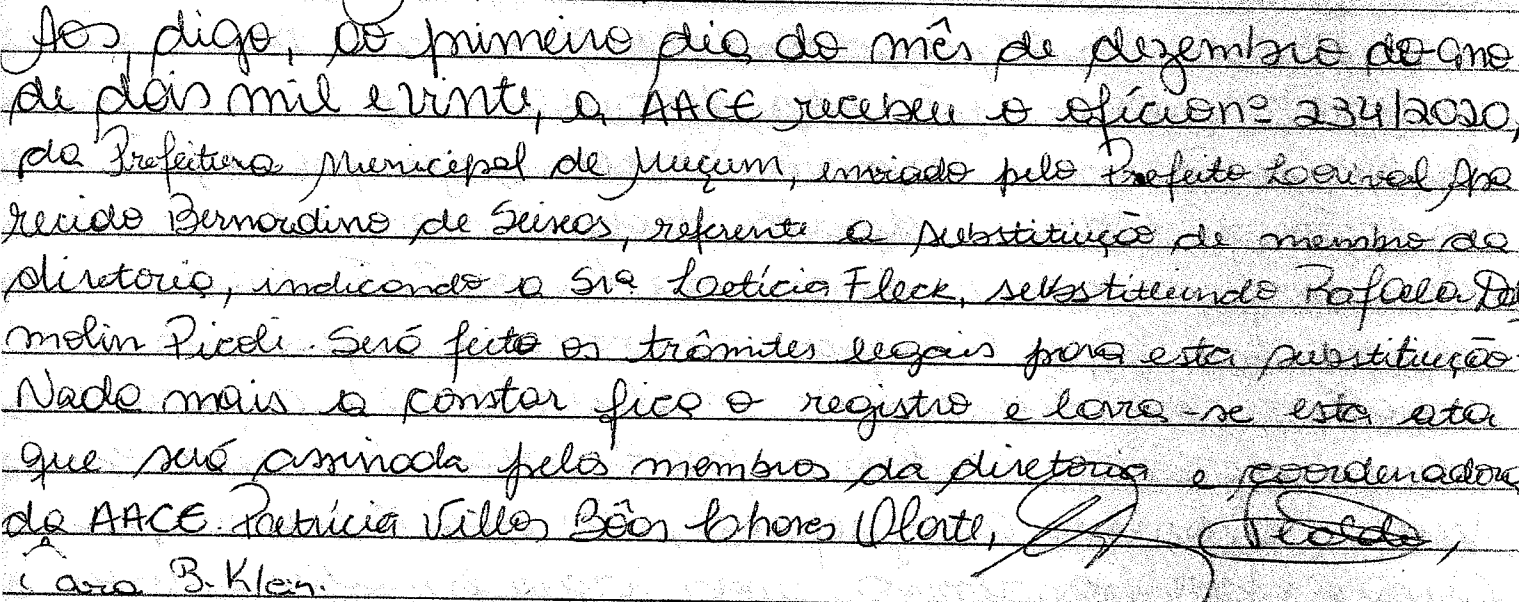 Aos, digo, ao primeiro dia do mês de dezembro do ano
de dois mil e vinte, a AACE recebeu o ofício nº 234/2020,
da Prefeitura Municipal de Muçum, enviado pelo Prefeito Lourival Apa
recido Bernardino de Seixas, referente a substituição de membro da
diretoria, indicando a Srª Laetícia Fleck, substituindo Rafaela Dal
molin Picoli. Será feito os trâmites legais para esta substituição.
Nada mais a constar fica o registro e lavra-se esta ata
que será assinada pelos membros da diretoria e coordenadora
da AACE. Patrícia Villas Bôas Chaves Olarte,
B. Klein.